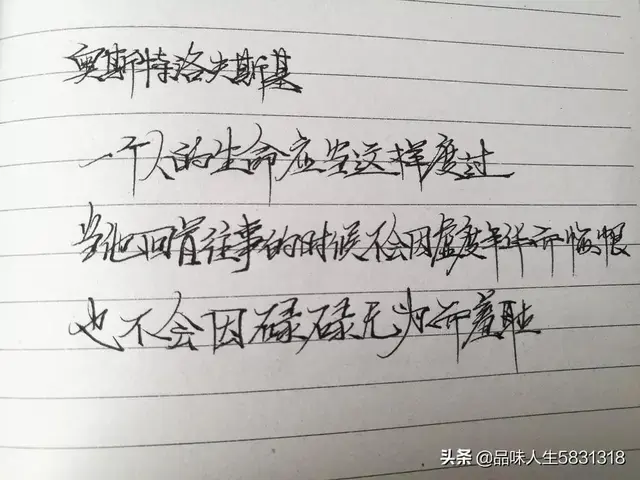 奥斯特洛夫斯基
一个人的生命应当这样度过
当他回首往事的时候不会因虚度年华而悔恨
也不会因碌碌无为而羞耻
头条 @品味人生5831318